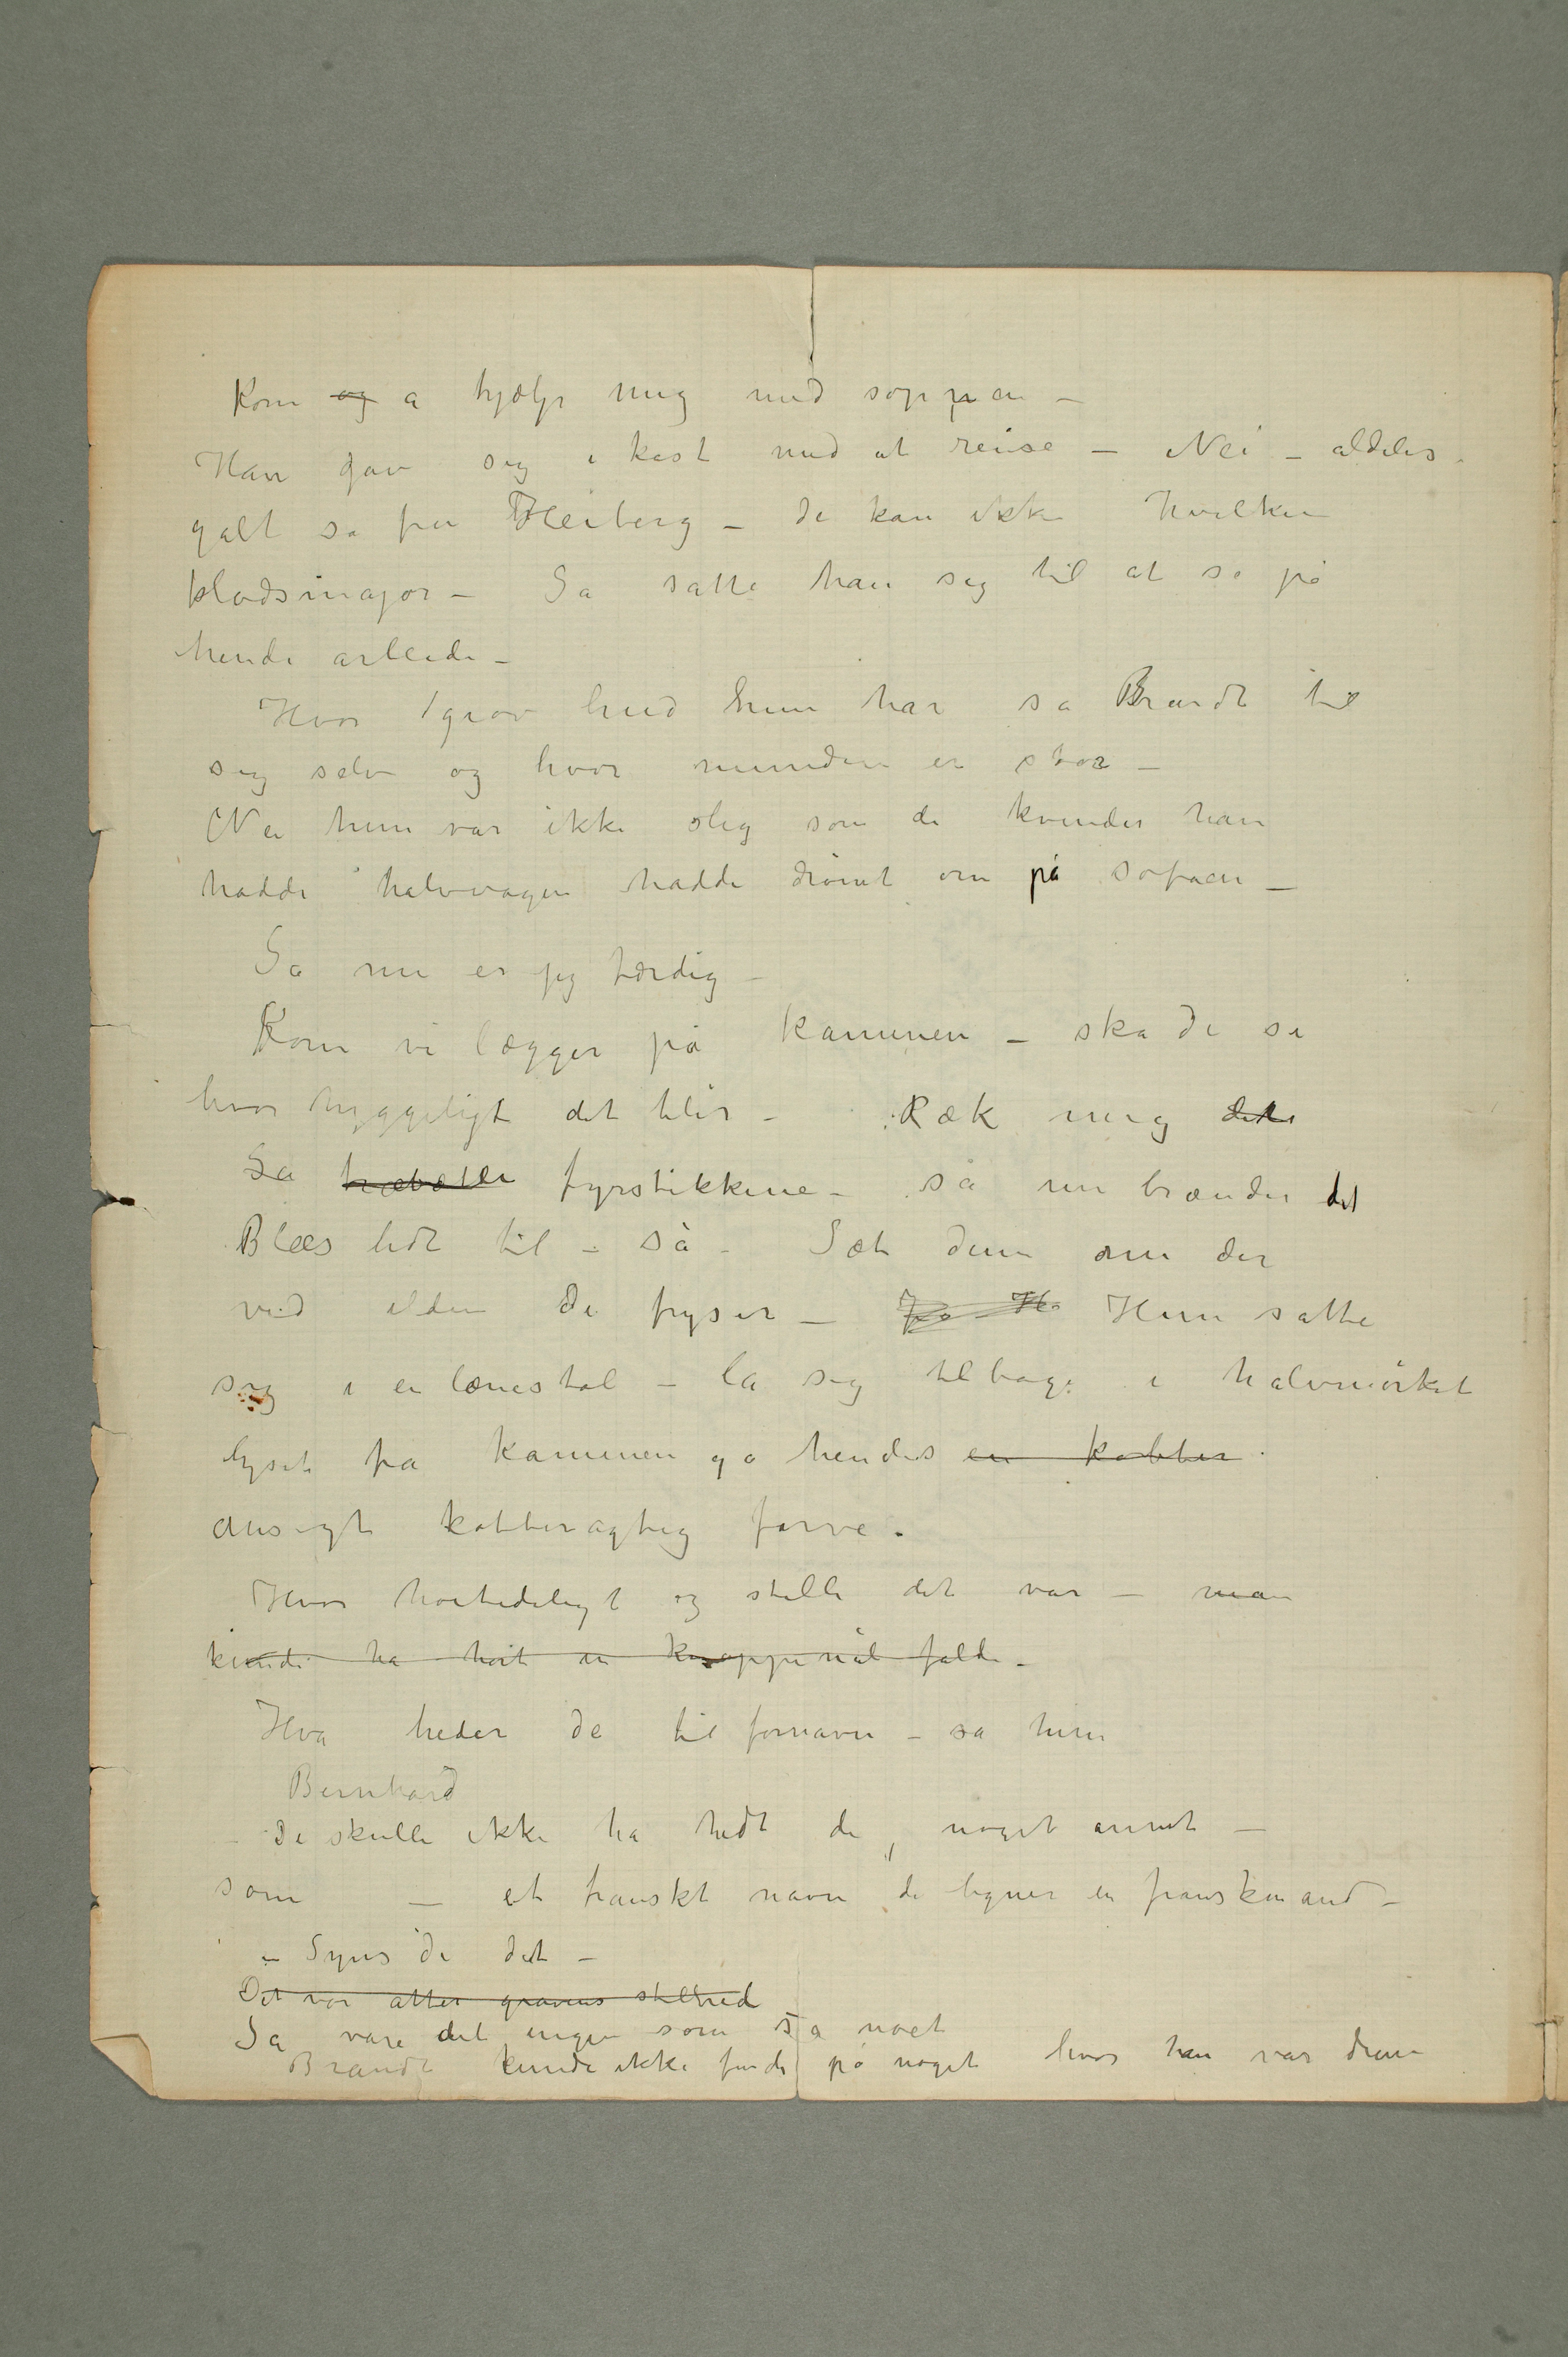 Kom og a hjælp mig med soppen –
Han gav sig i kast med at reise – Nei – aldeles
galt sa fru Heiberg – de kan ikke hvilken
klodsmajor – Sa satte han sig til at se på
hende arbeide –
Hvor grov hud hun har sa Brandt til
sig selv og hvor munden er stor –
Nei hun var ikke slig som de kvinder han
hadde halvvågen hadde drømt om på sofaen –
Sa nu er jeg færdig –
Kom vi lægger på kaminen – ska De se
hvor hyggeligt det blir – Ræk mig
Sa fyrstikkene – så nu brænder det
Blæs lidt til – så – Sæt dem nu der
ved ilden De fryser – Hun satte
sig i en lænestol – la sig tilbage i halvmørket
lyset fra kaminen ga hendes en kobber
ansigt kobberagtig farve.
Hvor høitideligt og stille det var – man
kunde ha hørt en knappenål falde –
Hva heder De til fornavn – sa hun
Bernhard
– De skulle ikke ha hedt de, noget annet –
som – et franskt navn de ligner en franskmand –
– Syns De det –
Det var atter gravens stillhed
Sa vare det ingen som sa noet
Brandt kunde ikke finde på noget hvor han var dum